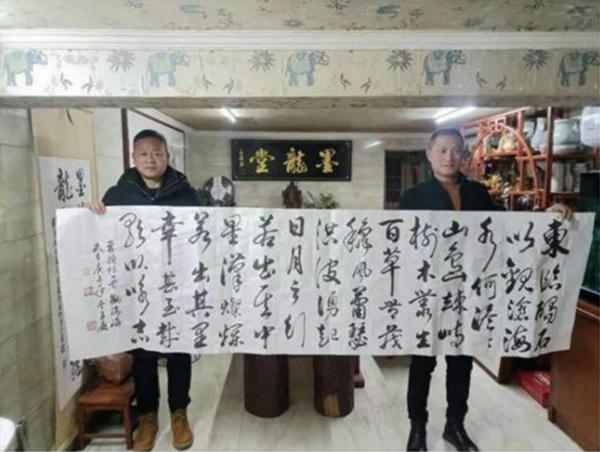 墨龍堂
東臨碣石
以觀滄海
水何澹々
山島竦峙
樹木叢生
百草豐茂
秋風蕭瑟
洪波湧起
日月之行
若出其中
星漢燦爛
若出其里
幸甚至哉
歌以咏志
觀滄海
墨
龍